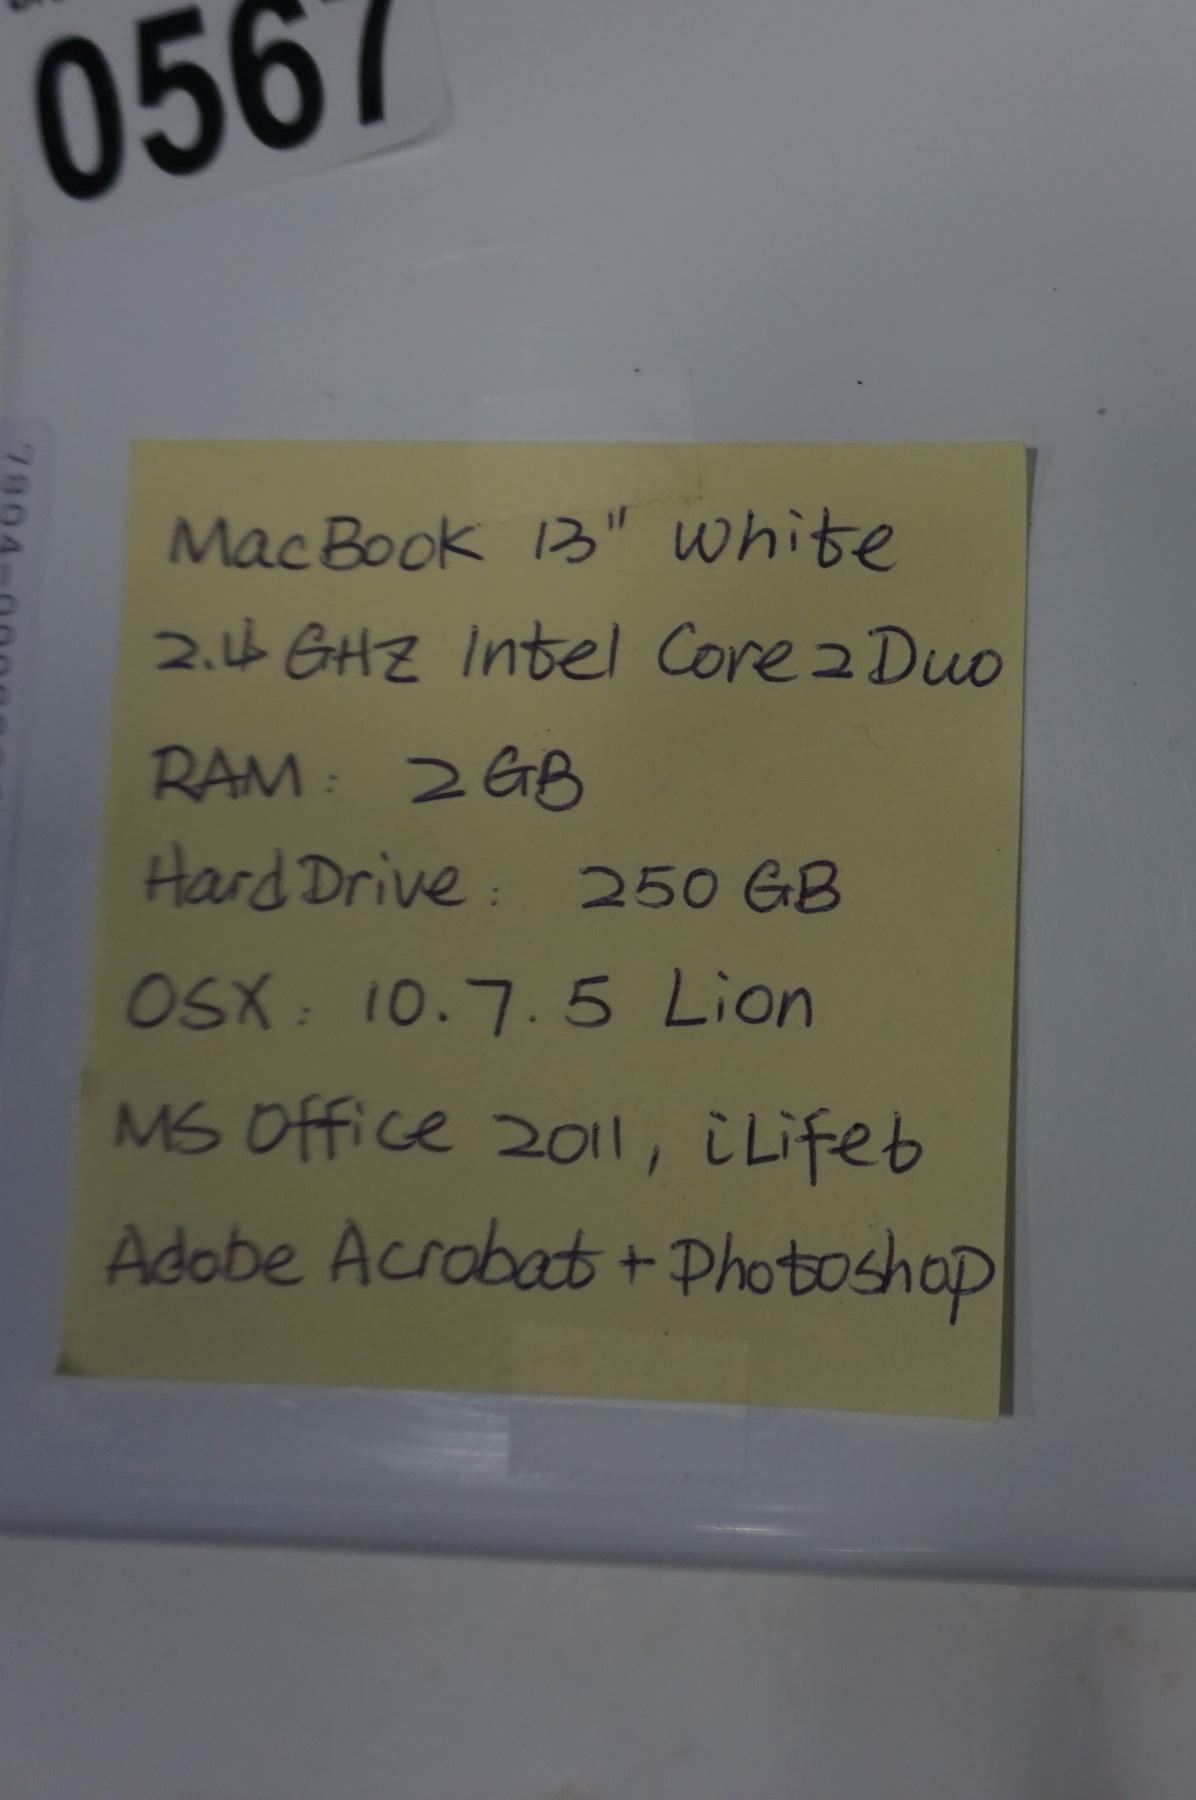 0567
MacBook 13" White
2.4 GHZ Intel Core 2 Duo
RAM: 2 GB
Hard Drive: 250 GB
OSX: 10.7.5 Lion
MS Office 2011, iLife6
Adobe Acrobat + Photoshop